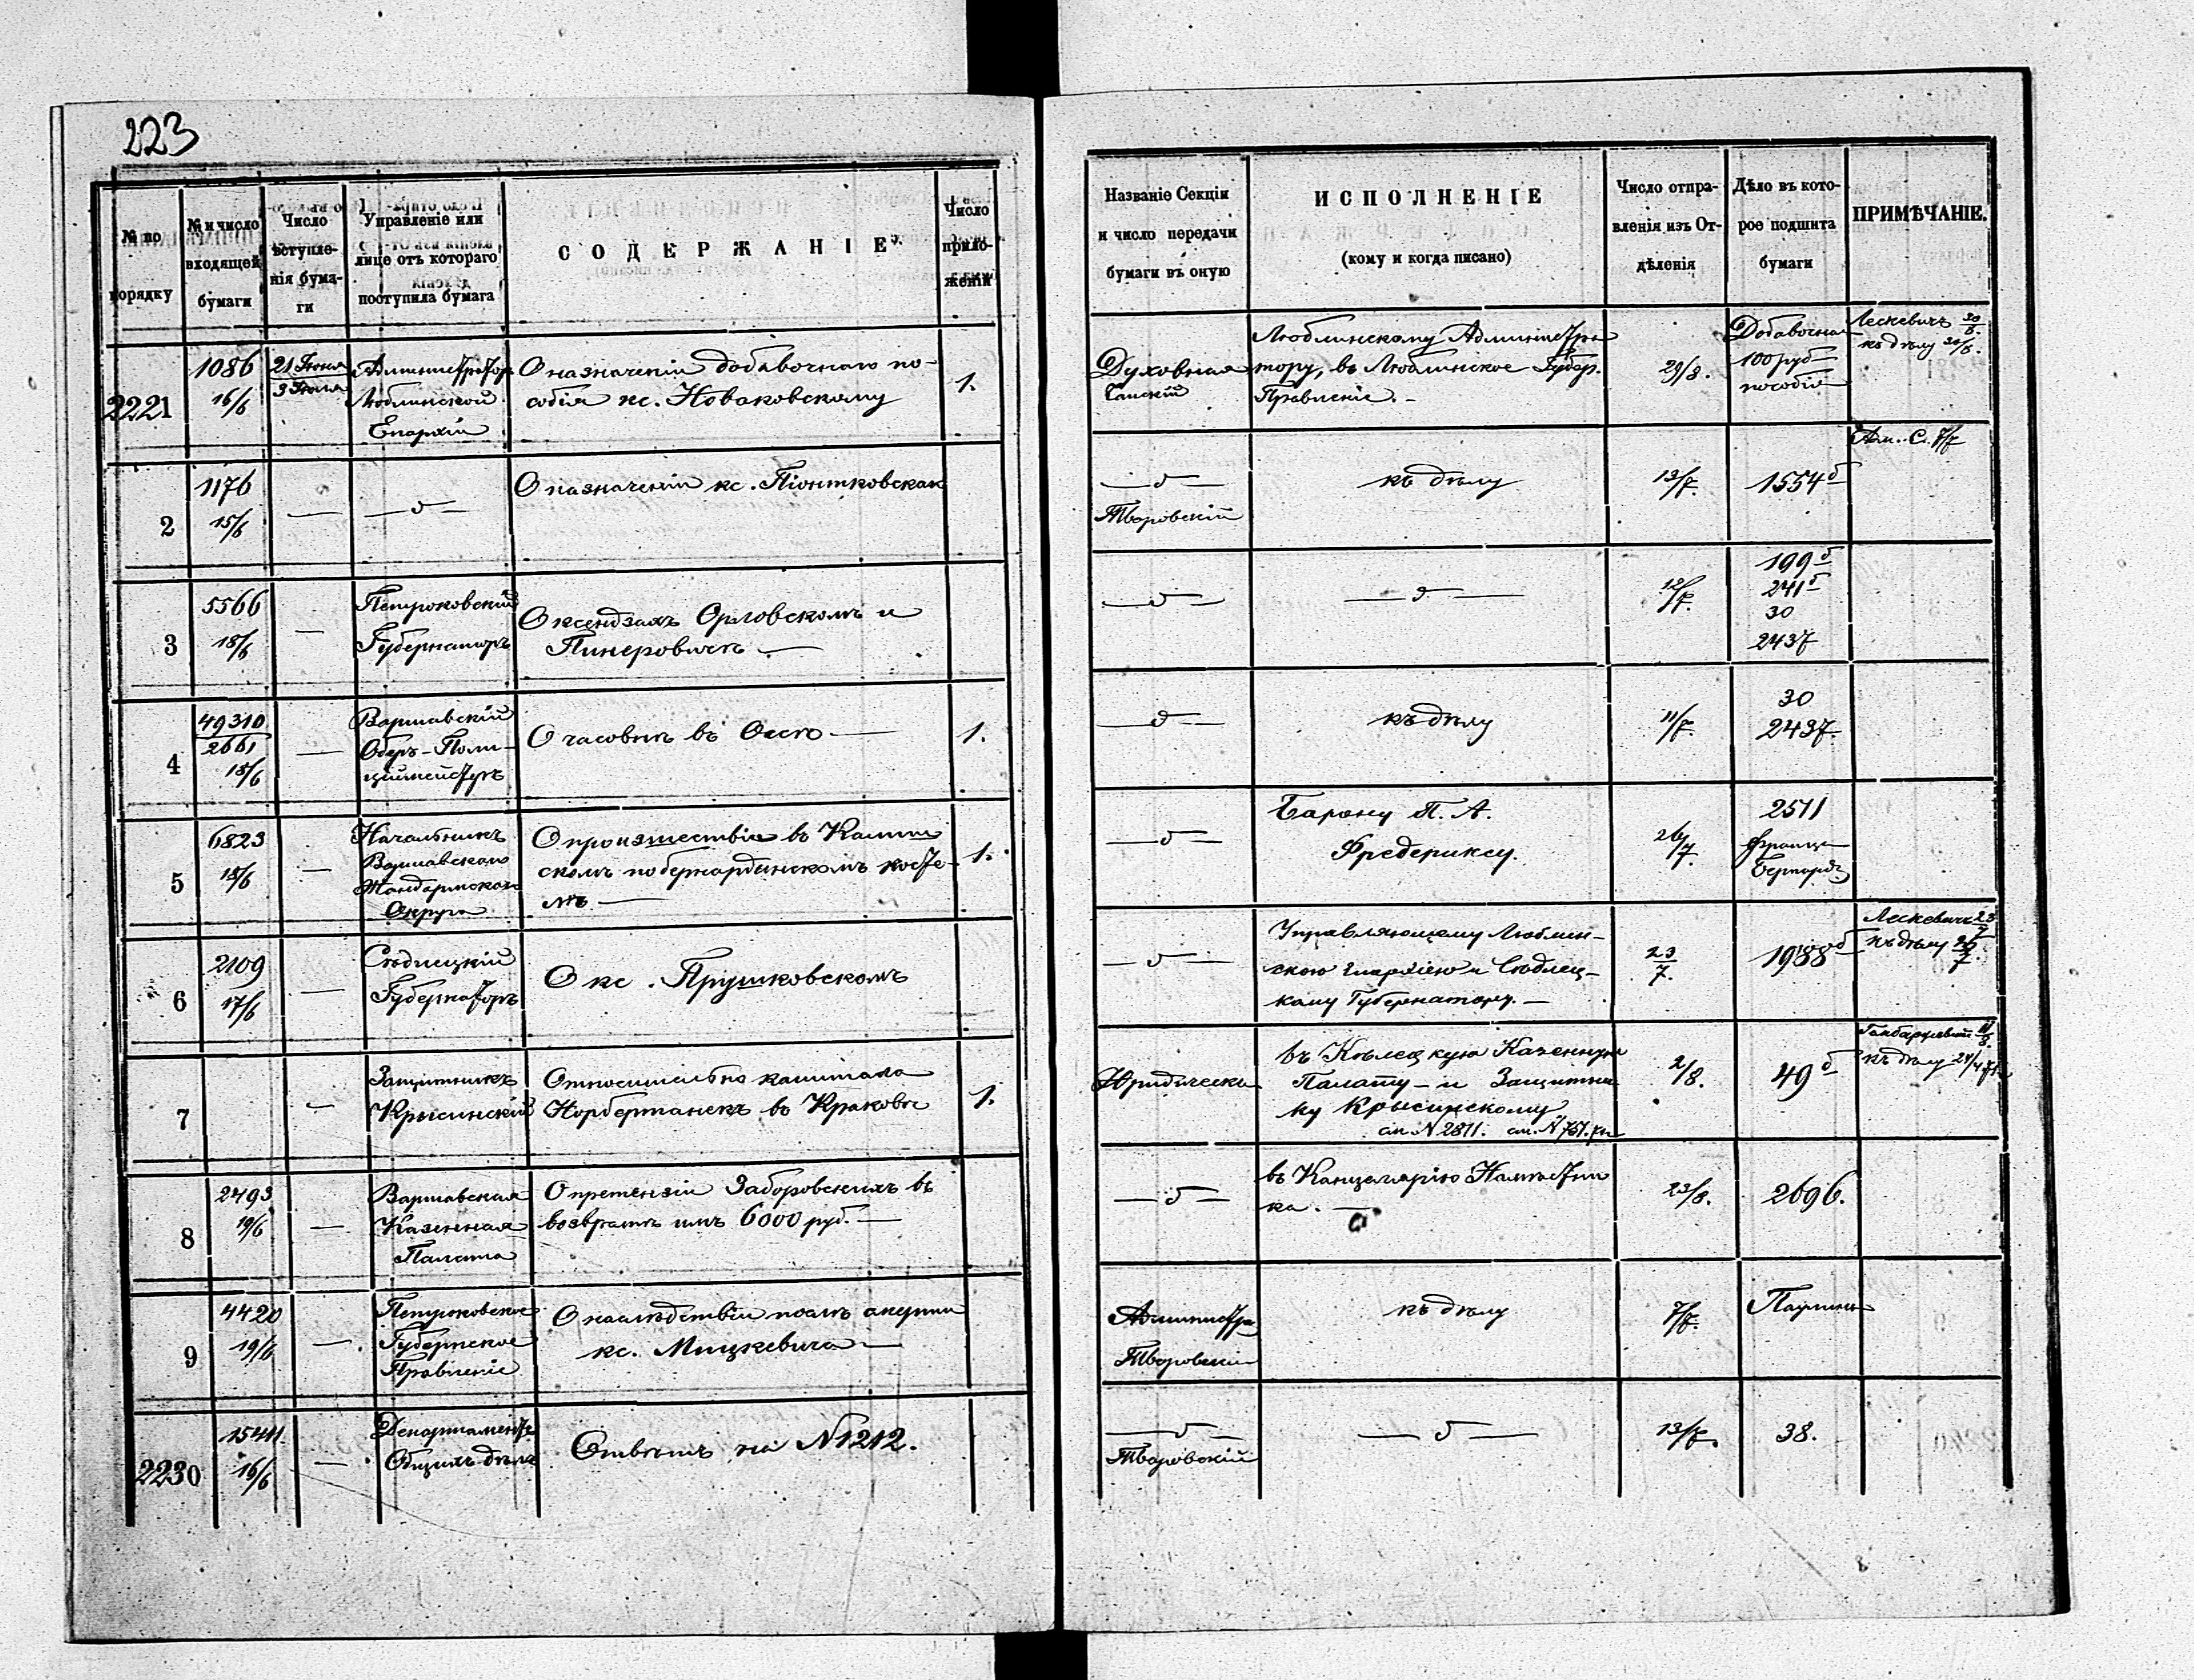 223
№ по порядку
№ и число входящей бумаги
Число вступле-нія бума-ги
Управленіе или лице отъ котораго поступила бумага
СОДЕРЖАНІЕ.
Число прило-женій
Названіе Секціи и число передачи бумаги въ оную
ИСПОЛНЕНІЕ
(кому и когда писано)
Число отпра-вленія изъ От-дѣленія
Дѣло въ кото-рое подшита бумаги
ПРИМѢЧАНІЕ.
2221
1086
16/6
21 Іюня
3 Іюля
Администраторъ
Люблинской
Епархіи
О назначеніи добавочнаго по-
собія кс. Новаковскому
1.
Духовная
Люблинскому Администра
тору, въ Люблинское Губер.
Правленіе. -
29/8.
Добавочная
100 руб
пособія
Лескевичъ 30/8.
къ дѣлу
2
1176
15/6
О назначеніи кс. Піонтковскаго
Творовскій
къ дѣлу
13/7.
1554 б
3
5566
18/6
Петроковскій
Губернаторъ
О ксендзахъ Орловскомъ и
12/7.
199 б
241 б
30
2437
4
49310
2661
18/6
Варшавскій
Оберъ-Поли-
ціймейстеръ
О часовнѣ въ
1.
къ дѣлу
11/7.
30
2437.
5
6823
18/6
Начальникъ
Варшавскаго
Жандармскаго
Округа
О произшествіи въ Калиш
скомъ побернардинскомъ косте-
лѣ
1.
Барону П. А.
Фредериксу.
26/7
2511
Франц
Бернард
6
2109
17/6
Сѣдлецкій
Губернаторъ
О кс. Прушковскомъ
Управляющему Люблин-
скою епархіею и Сѣдлец-
кому Губернатору. -
23/7.
1988 б
Лескевичъ 23/7
къ дѣлу
7
Защитникъ
Крысинскій
Относительно капитала
Норбертанекъ въ Краковѣ
1.
Юридическа
въ Кѣлецкую Казенную
Палату - и Защитни
ку Крысинскому
см. N 2811. см. N 751.
2/8.
49 б
къ дѣлу
8
2493
19/6
Варшавская
Казенная
Палата
О претензіи Заборовскихъ въ
возвратѣ имъ 6000 руб.
въ Канцелярію Намѣстни
ка.
23/8.
2696.
9
4420
19/6
Петроковское
Губернское
Правленіе
О наслѣдствіи послѣ смерти
кс. Мицкевича
Администра
Творовскій
къ дѣлу
7/7.
2230
15411.
16/6
Департаментъ
Общихъ дѣлъ
Отвѣтъ на N 1212.
Творовскій
13/7.
38.